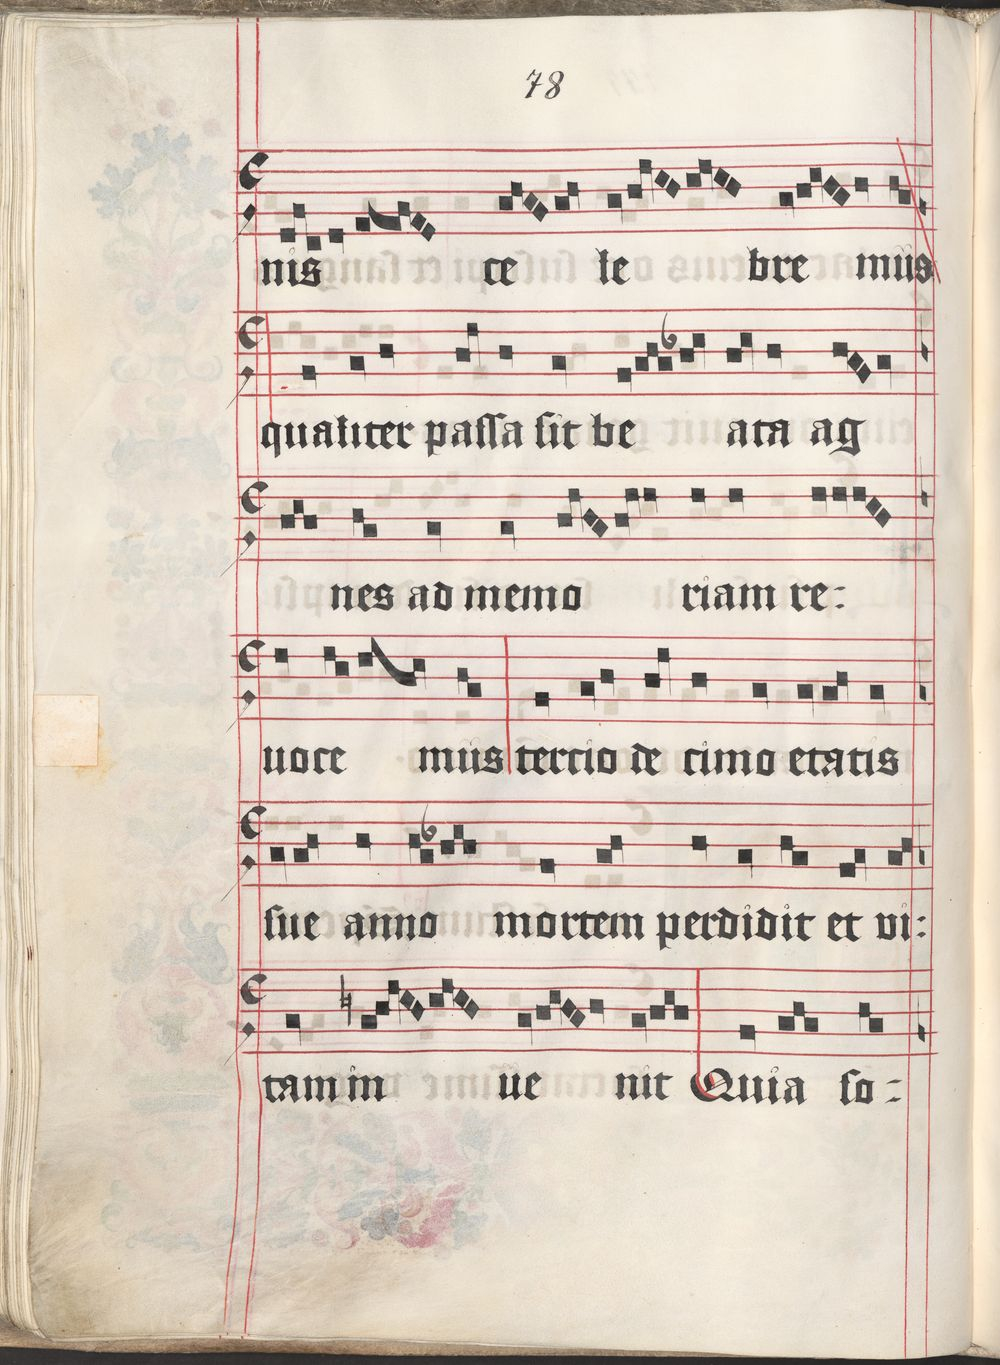 78
nis ce le bre mus
qualiter passa sit be ata ag
nes ad memo riam re:
uoce mus tercio de cimo etatis
sue anno mortem perdidit et vi:
tam in ue nit Quia so: